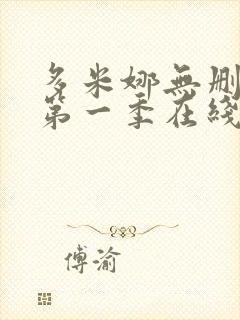 多米娜無刪
第一季在綫
傅渝